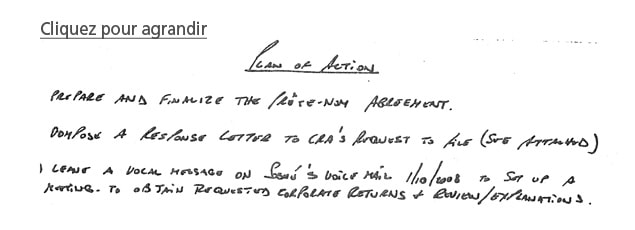 Cliquez pour agrandir
PLAN OF ACTION
PREPARE AND FINALIZE THE PRÊTE-NOM AGREEMENT.
COMPOSE A RESPONSE LETTER TO CRA'S REQUEST TO FILE (SEE ATTACHED)
I LEAVE A VOCAL MESSAGE ON VOICE MAIL 1/10/2008 TO SET UP A
MEETING. TO OBTAIN REQUESTED CORPORATE RETURNS + REVIEW/EXPLANATIONS.